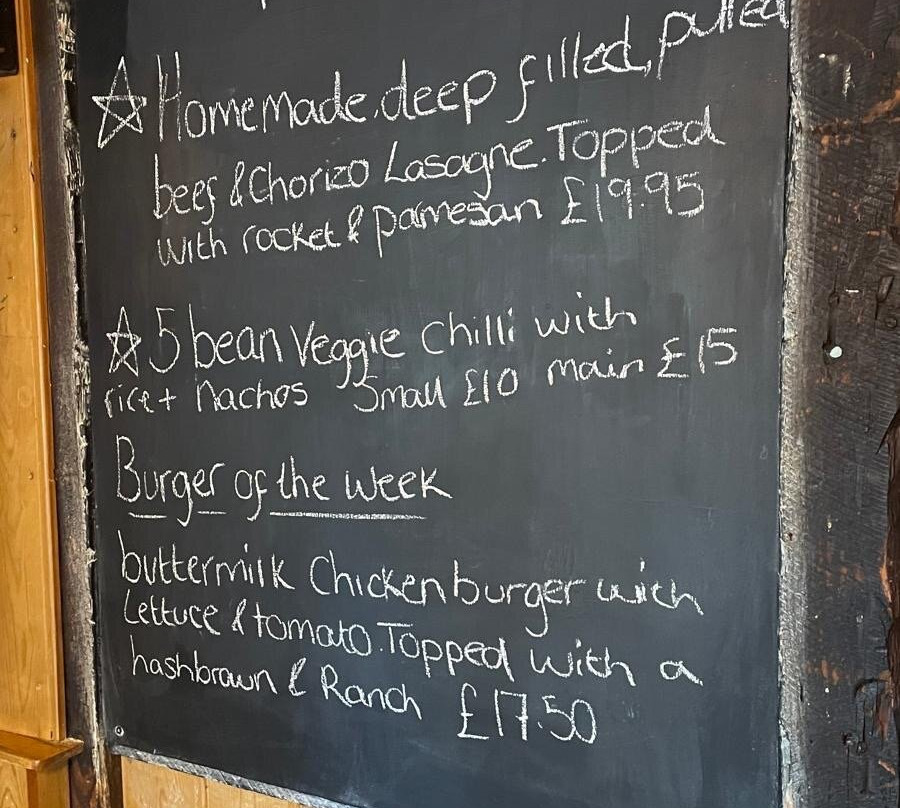 ☆ Homemade, deep filled, pulled
beef & Chorizo Lasagne. Topped
with rocket & parmesan £19.95
☆ 5 bean Veggie Chilli with
rice + nachos Small £10 main £15
Burger of the Week
buttermilk Chicken burger with
Lettuce & tomato. Topped with a
hashbrown & Ranch £17.50